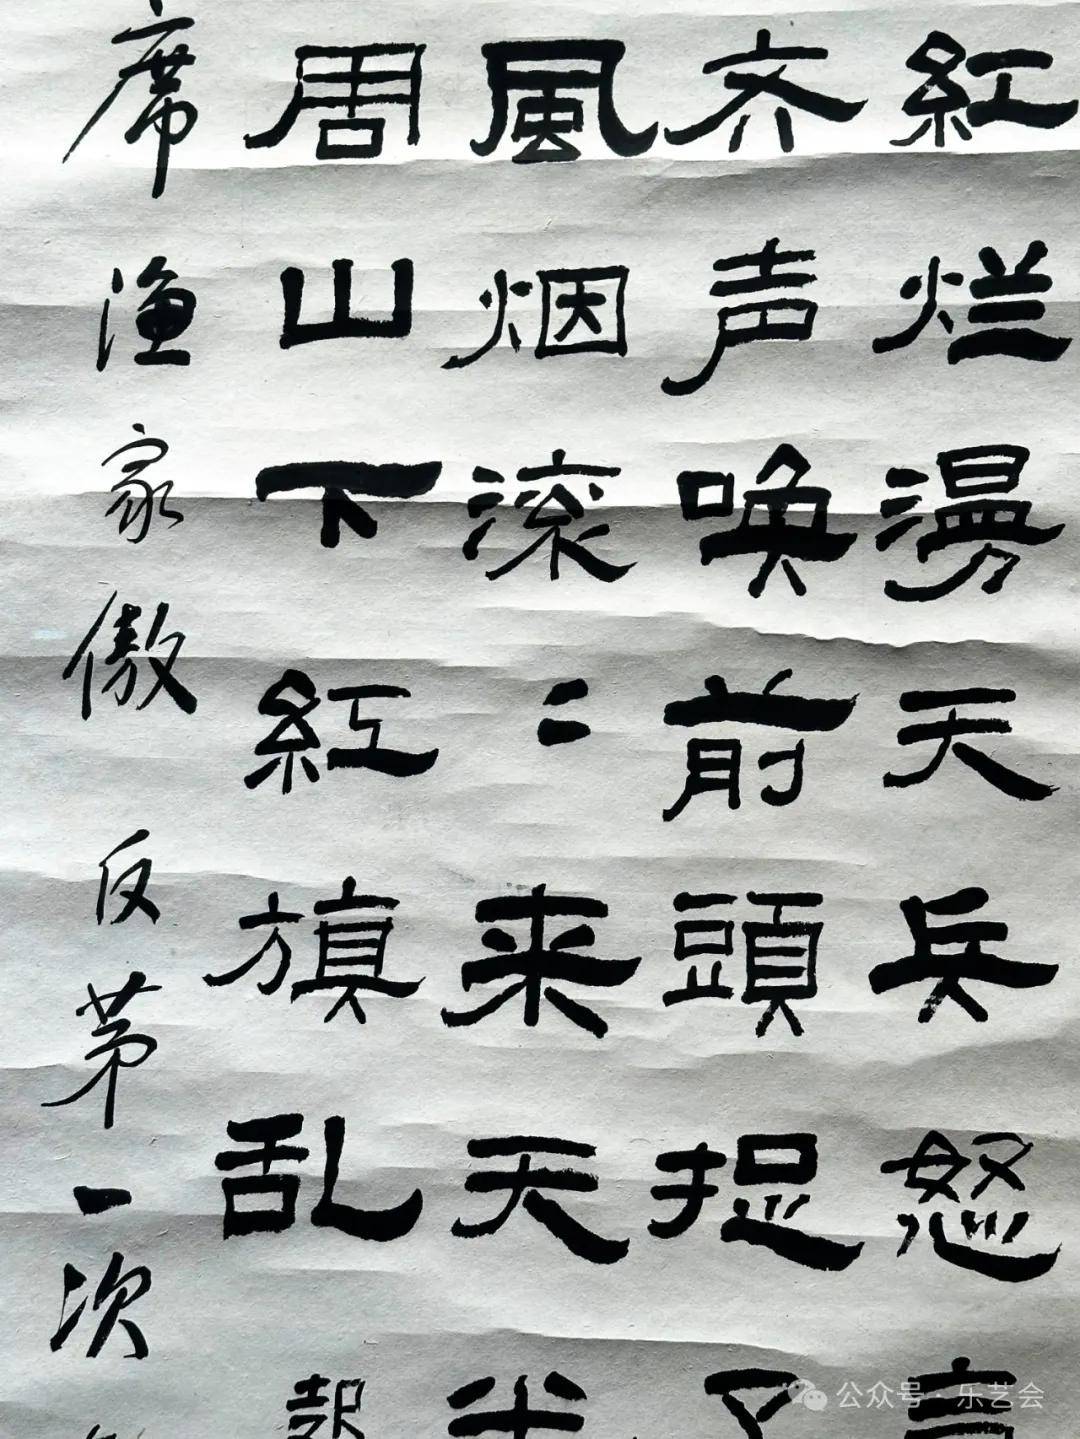 紅烂漫天兵怒
齐声唤前頭捉
風烟滚〻来天
周山下紅旗乱
席渔家傲反苐一次
公众号·乐艺会